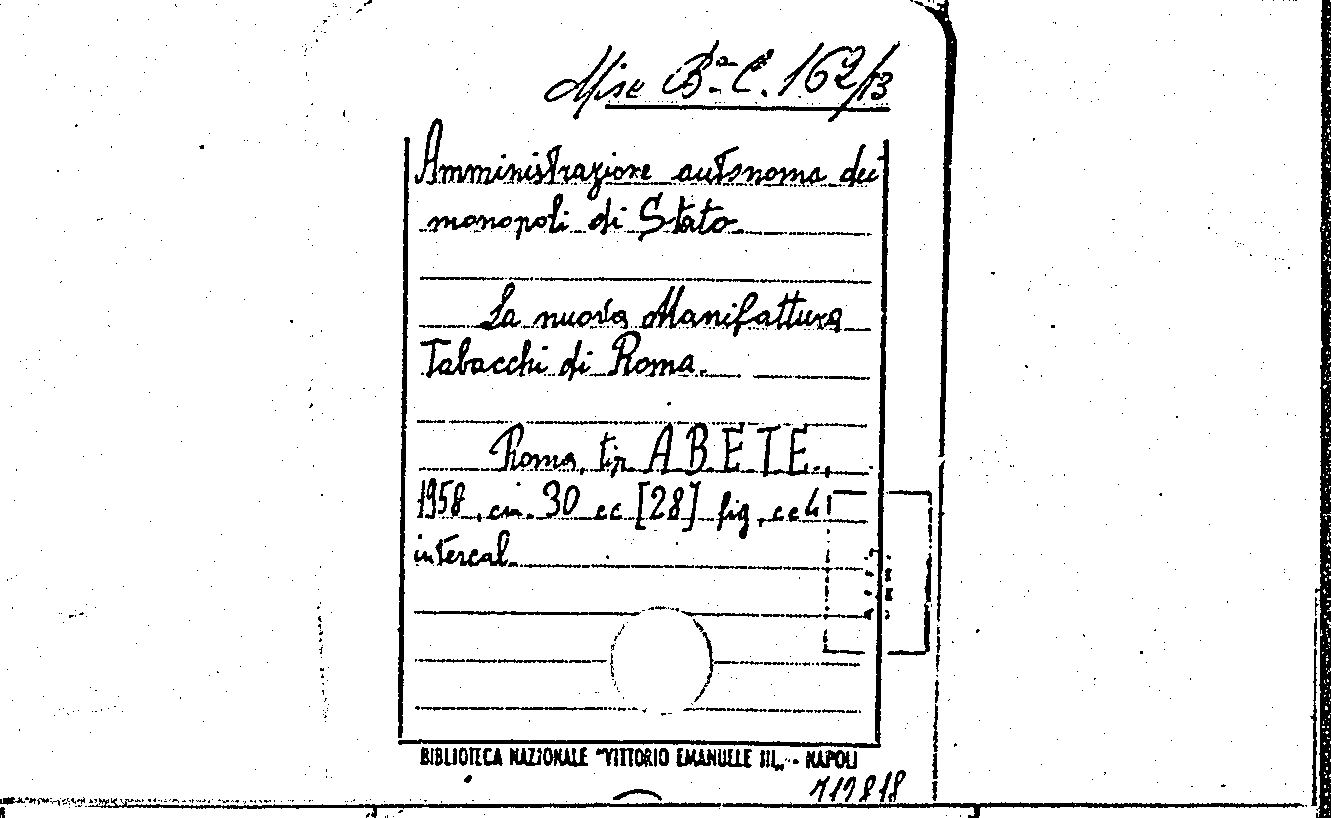 Misc Bª C. 162/13
Amministrazione autonoma dei
monopoli di Stato.
La nuova Manifattura
Tabacchi di Roma.
Roma, tip. A B E T E.,
1958, cm. 30 cc [28] fig, cc 4
intercal.
BIBLIOTECA NAZIONALE "VITTORIO EMANUELE III„ - NAPOLI
719818